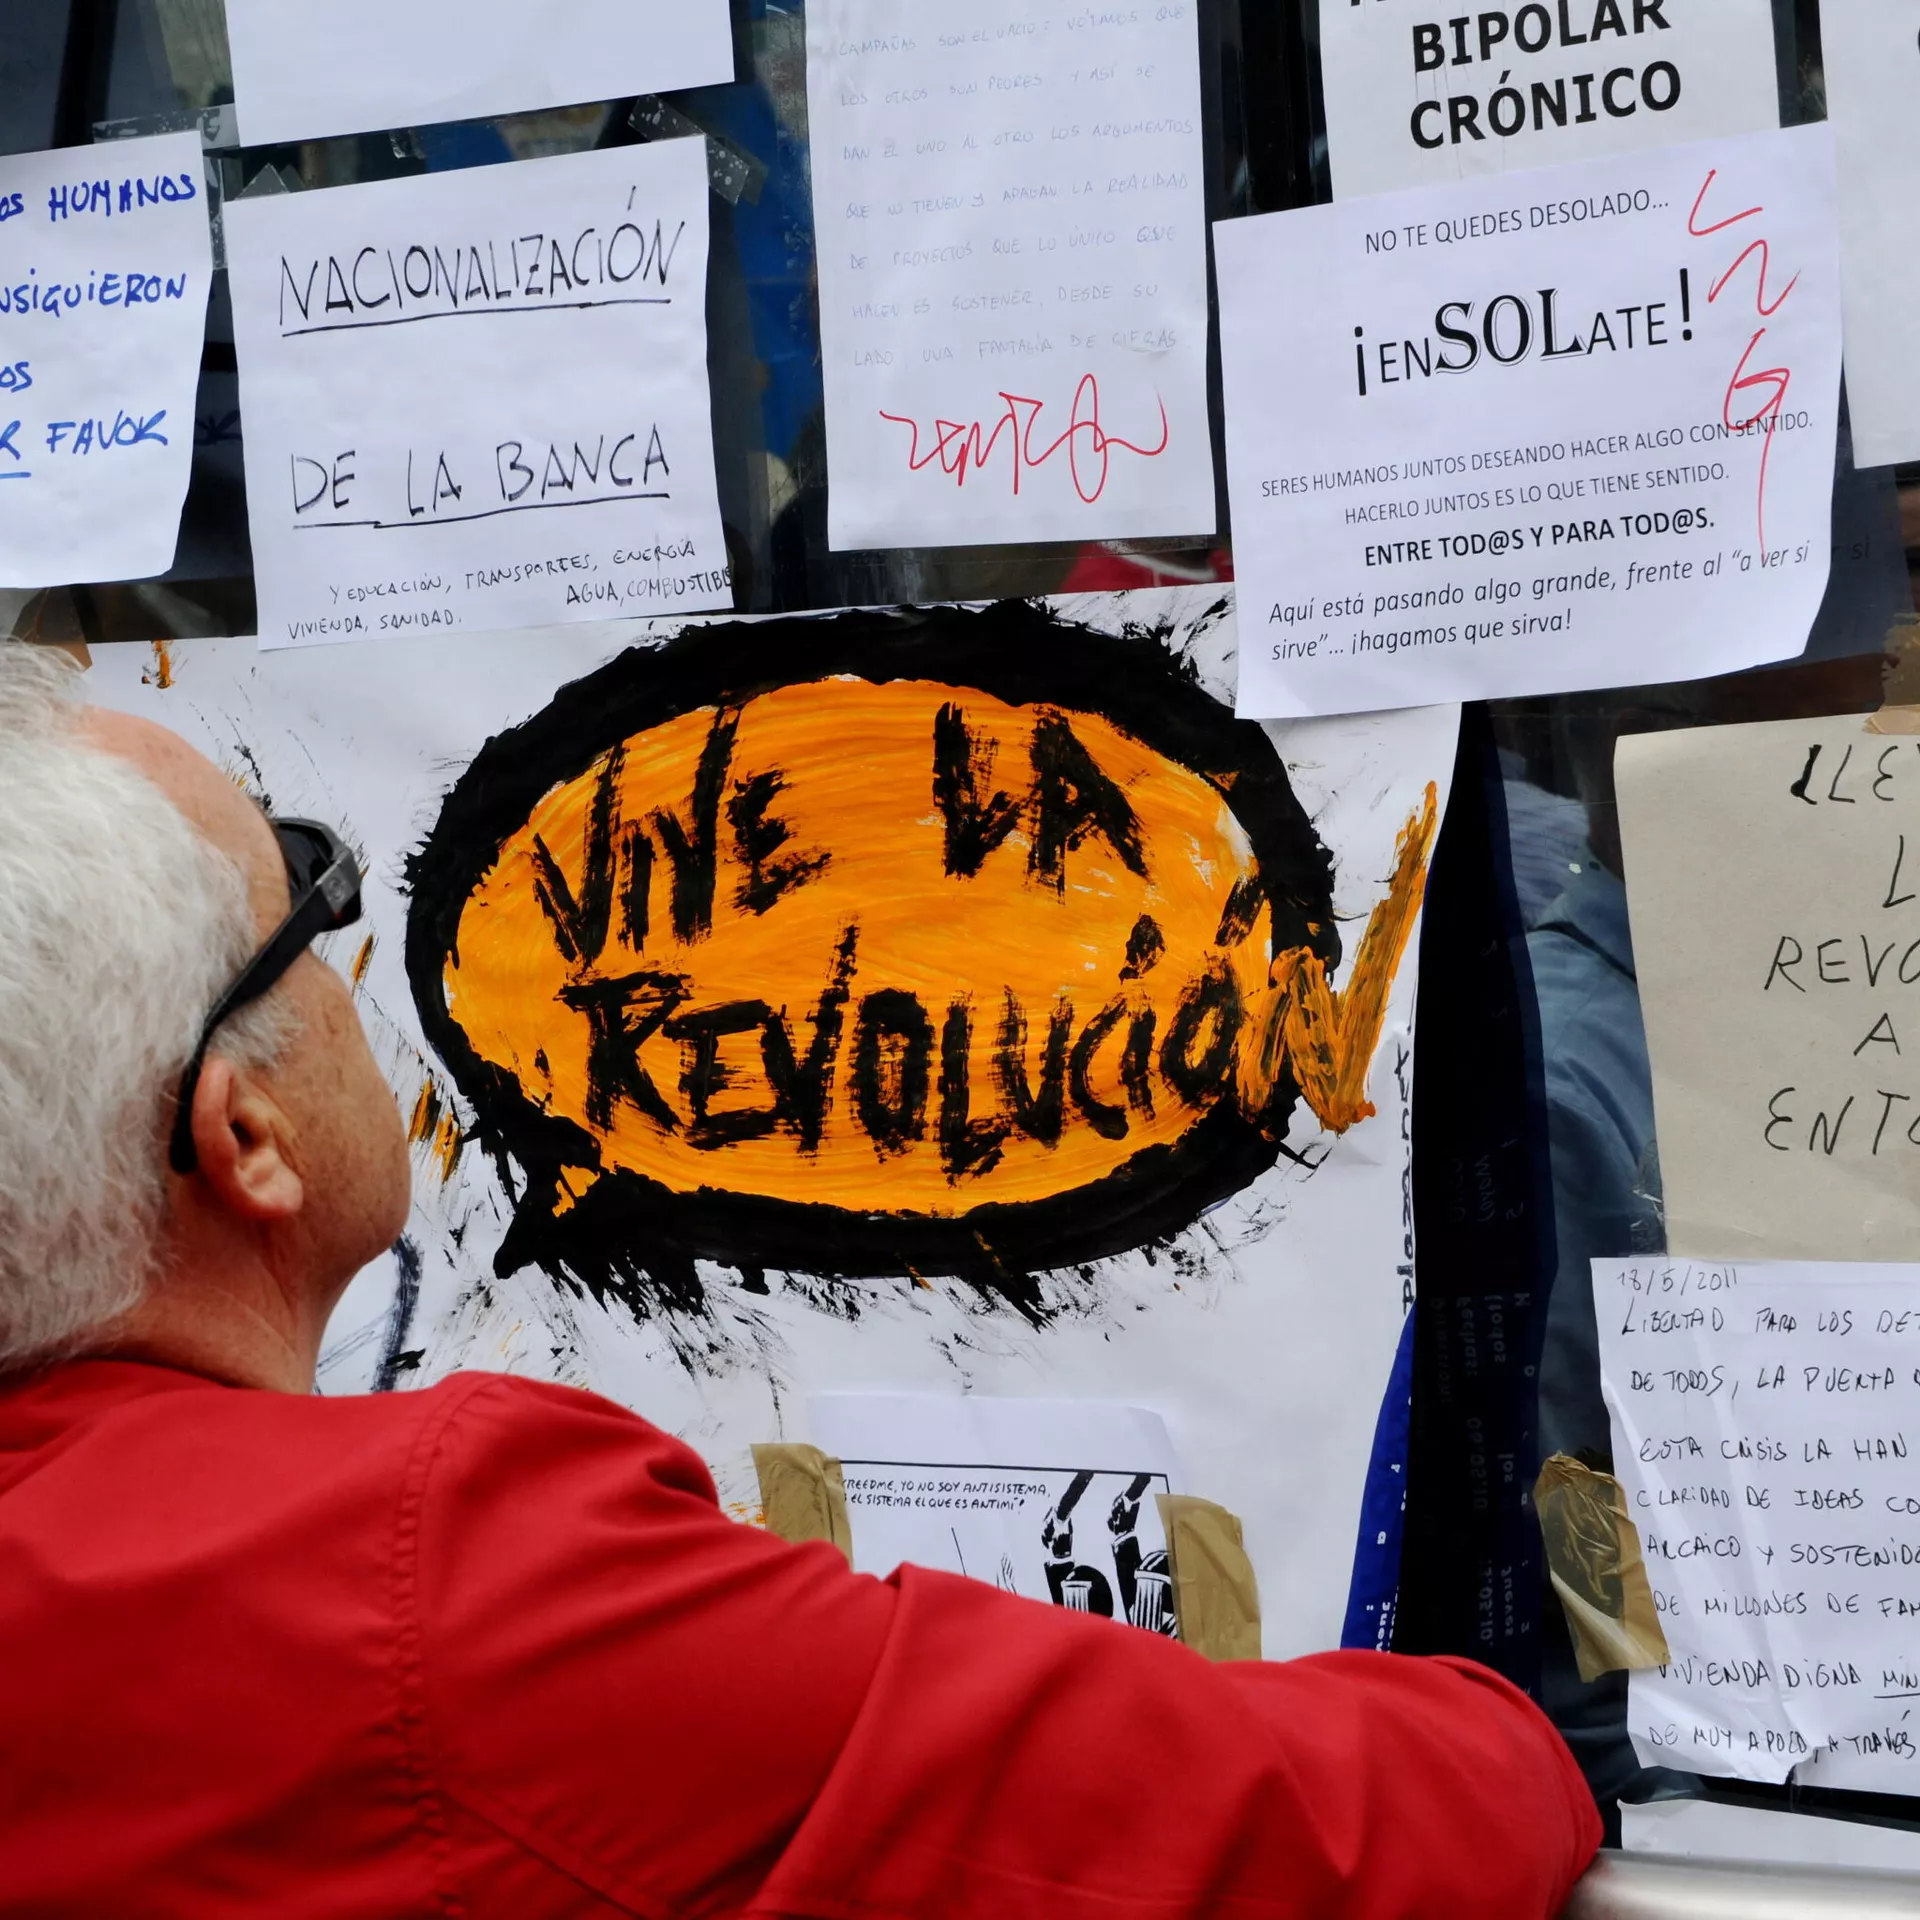 OS HUMANOS
NSIGUIERON
OS
R FAVOR
NACIONALIZACIÓN
DE LA BANCA
Y EDUCACIÓN, TRANSPORTES, ENERGÍA
AGUA, COMBUSTIBLE
VIVIENDA, SANIDAD.
CAMPAÑAS SON EL VACIO: VOTAMOS QUE
LOS OTROS SON PEORES Y ASÍ SE
DAN EL UNO AL OTRO LOS ARGUMENTOS
QUE NO TIENEN Y APAGAN LA REALIDAD
DE PROYECTOS QUE LO ÚNICO QUE
HACEN ES SOSTENER, DESDE SU
LADO UNA FANTASÍA DE CIFRAS
BIPOLAR
CRÓNICO
NO TE QUEDES DESOLADO...
¡ENSOLATE!
SERES HUMANOS JUNTOS DESEANDO HACER ALGO CON SENTIDO.
HACERLO JUNTOS ES LO QUE TIENE SENTIDO.
ENTRE TOD@S Y PARA TOD@S.
Aquí está pasando algo grande, frente al "a ver si
sirve"... ¡hagamos que sirva!
VIVE LA
REVOLUCIÓN
plaza.net
CREEDME, YO NO SOY ANTISISTEMA,
ES EL SISTEMA EL QUE ES ANTIMÍ!
LLE
L
REVO
A
ENTO
18/5/2011
LIBERTAD PARA LOS DET
DE TODOS, LA PUERTA
ESTA CRISIS LA HAN
CLARIDAD DE IDEAS CO
ARCAICO Y SOSTENIDO
DE MILLONES DE FAM
VIVIENDA DIGNA MIN
DE MUY A POCO, A TRAVÉS